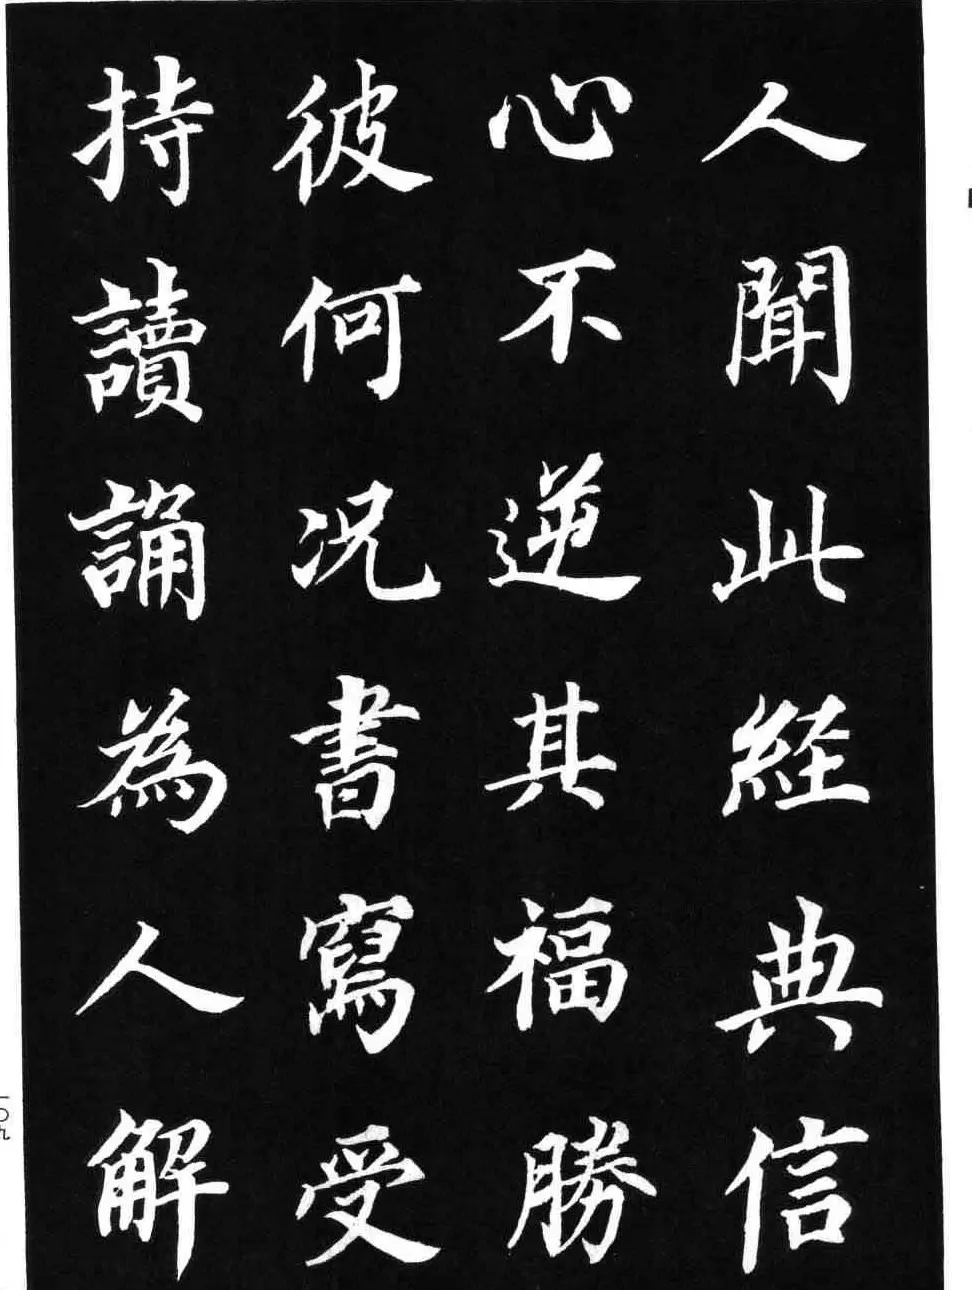 人聞此經典信
心不逆其福勝
彼何况書寫受
持讀誦為人解
一〇九